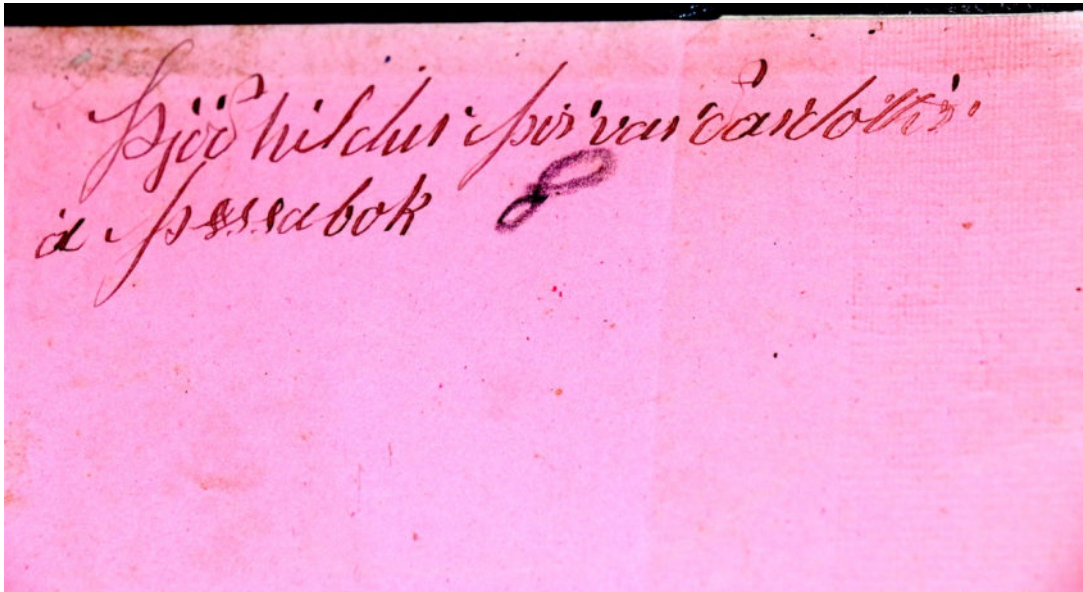 Þjóðhildur þorvarðardóttir
á þessabok